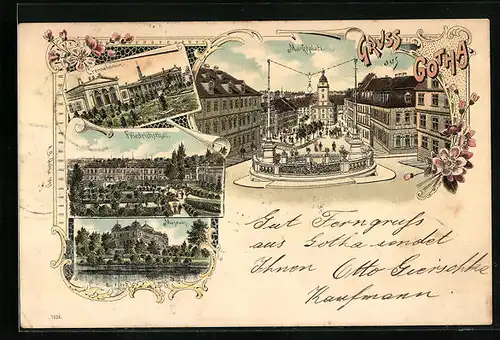 Marktplatz.
GRUSS
aus
GOTHA.
Friedrichsthal.
Museum.
Gut Ferngruss
aus Gotha sendet
Ihnen Otto Gierschke
Kaufmann.